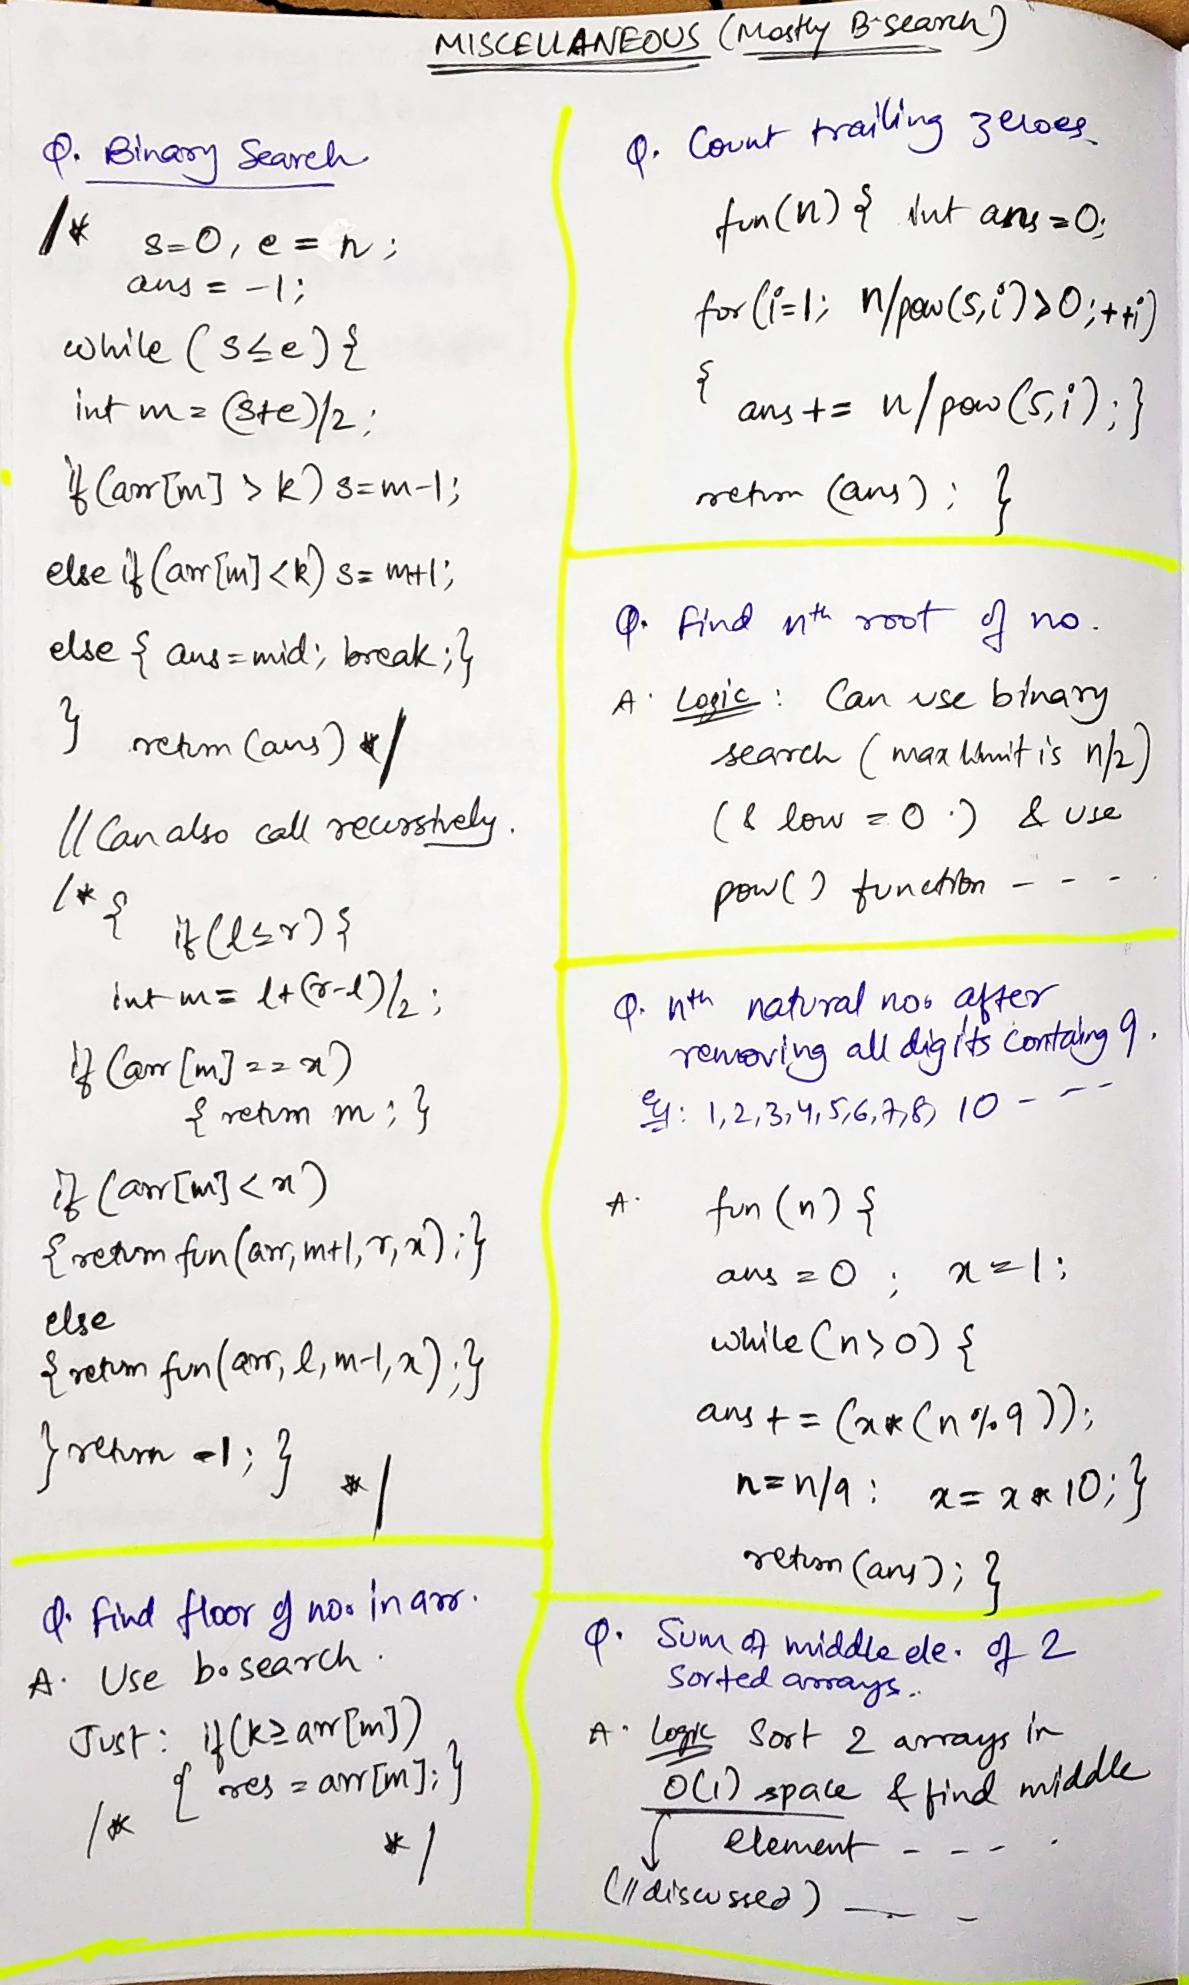 MISCELLANEOUS (Mostly B-search)
Q. Binary Search
/* s=0, e = n;
ans = -1;
while (s≤e) {
int m = (s+e)/2;
if (arr[m] > k) s=m-1;
else if (arr[m] <k) s= m+1;
else { ans = mid; break;}
} return (ans) */
// Can also call recursively.
/* {
if (l≤r) {
int m= l+(r-l)/2;
if (arr[m] == x)
{ return m; }
if (arr[m] < x)
{ return fun(arr, m+1, r, x);}
else
{ return fun(arr, l, m-1, x);}
} return -1; } */
Q. Find floor of no. in arr.
A. Use b.search.
Just: if (k≥arr[m])
{ res = arr[m];}
/* */
Q. Count trailing zeroes
fun(n) { int ans=0;
for (i=1; n/pow(5,i)>0; ++i)
{ ans += n/pow(5,i);}
return (ans); }
Q. Find nth root of no.
A. Logic: Can use binary
search (max limit is n/2)
(& low = 0.) & use
pow() function - - - .
Q. nth natural no. after
removing all digits containg 9.
eg: 1,2,3,4,5,6,7,8, 10 - - -
A. fun (n) {
ans = 0; x=1;
while (n>0) {
ans += (x*(n%9));
n=n/9; x= x*10;}
return (ans); }
Q. Sum of middle ele. of 2
sorted arrays..
A. Logic Sort 2 arrays in
O(1) space & find middle
element - - - .
(//discussed) — - -